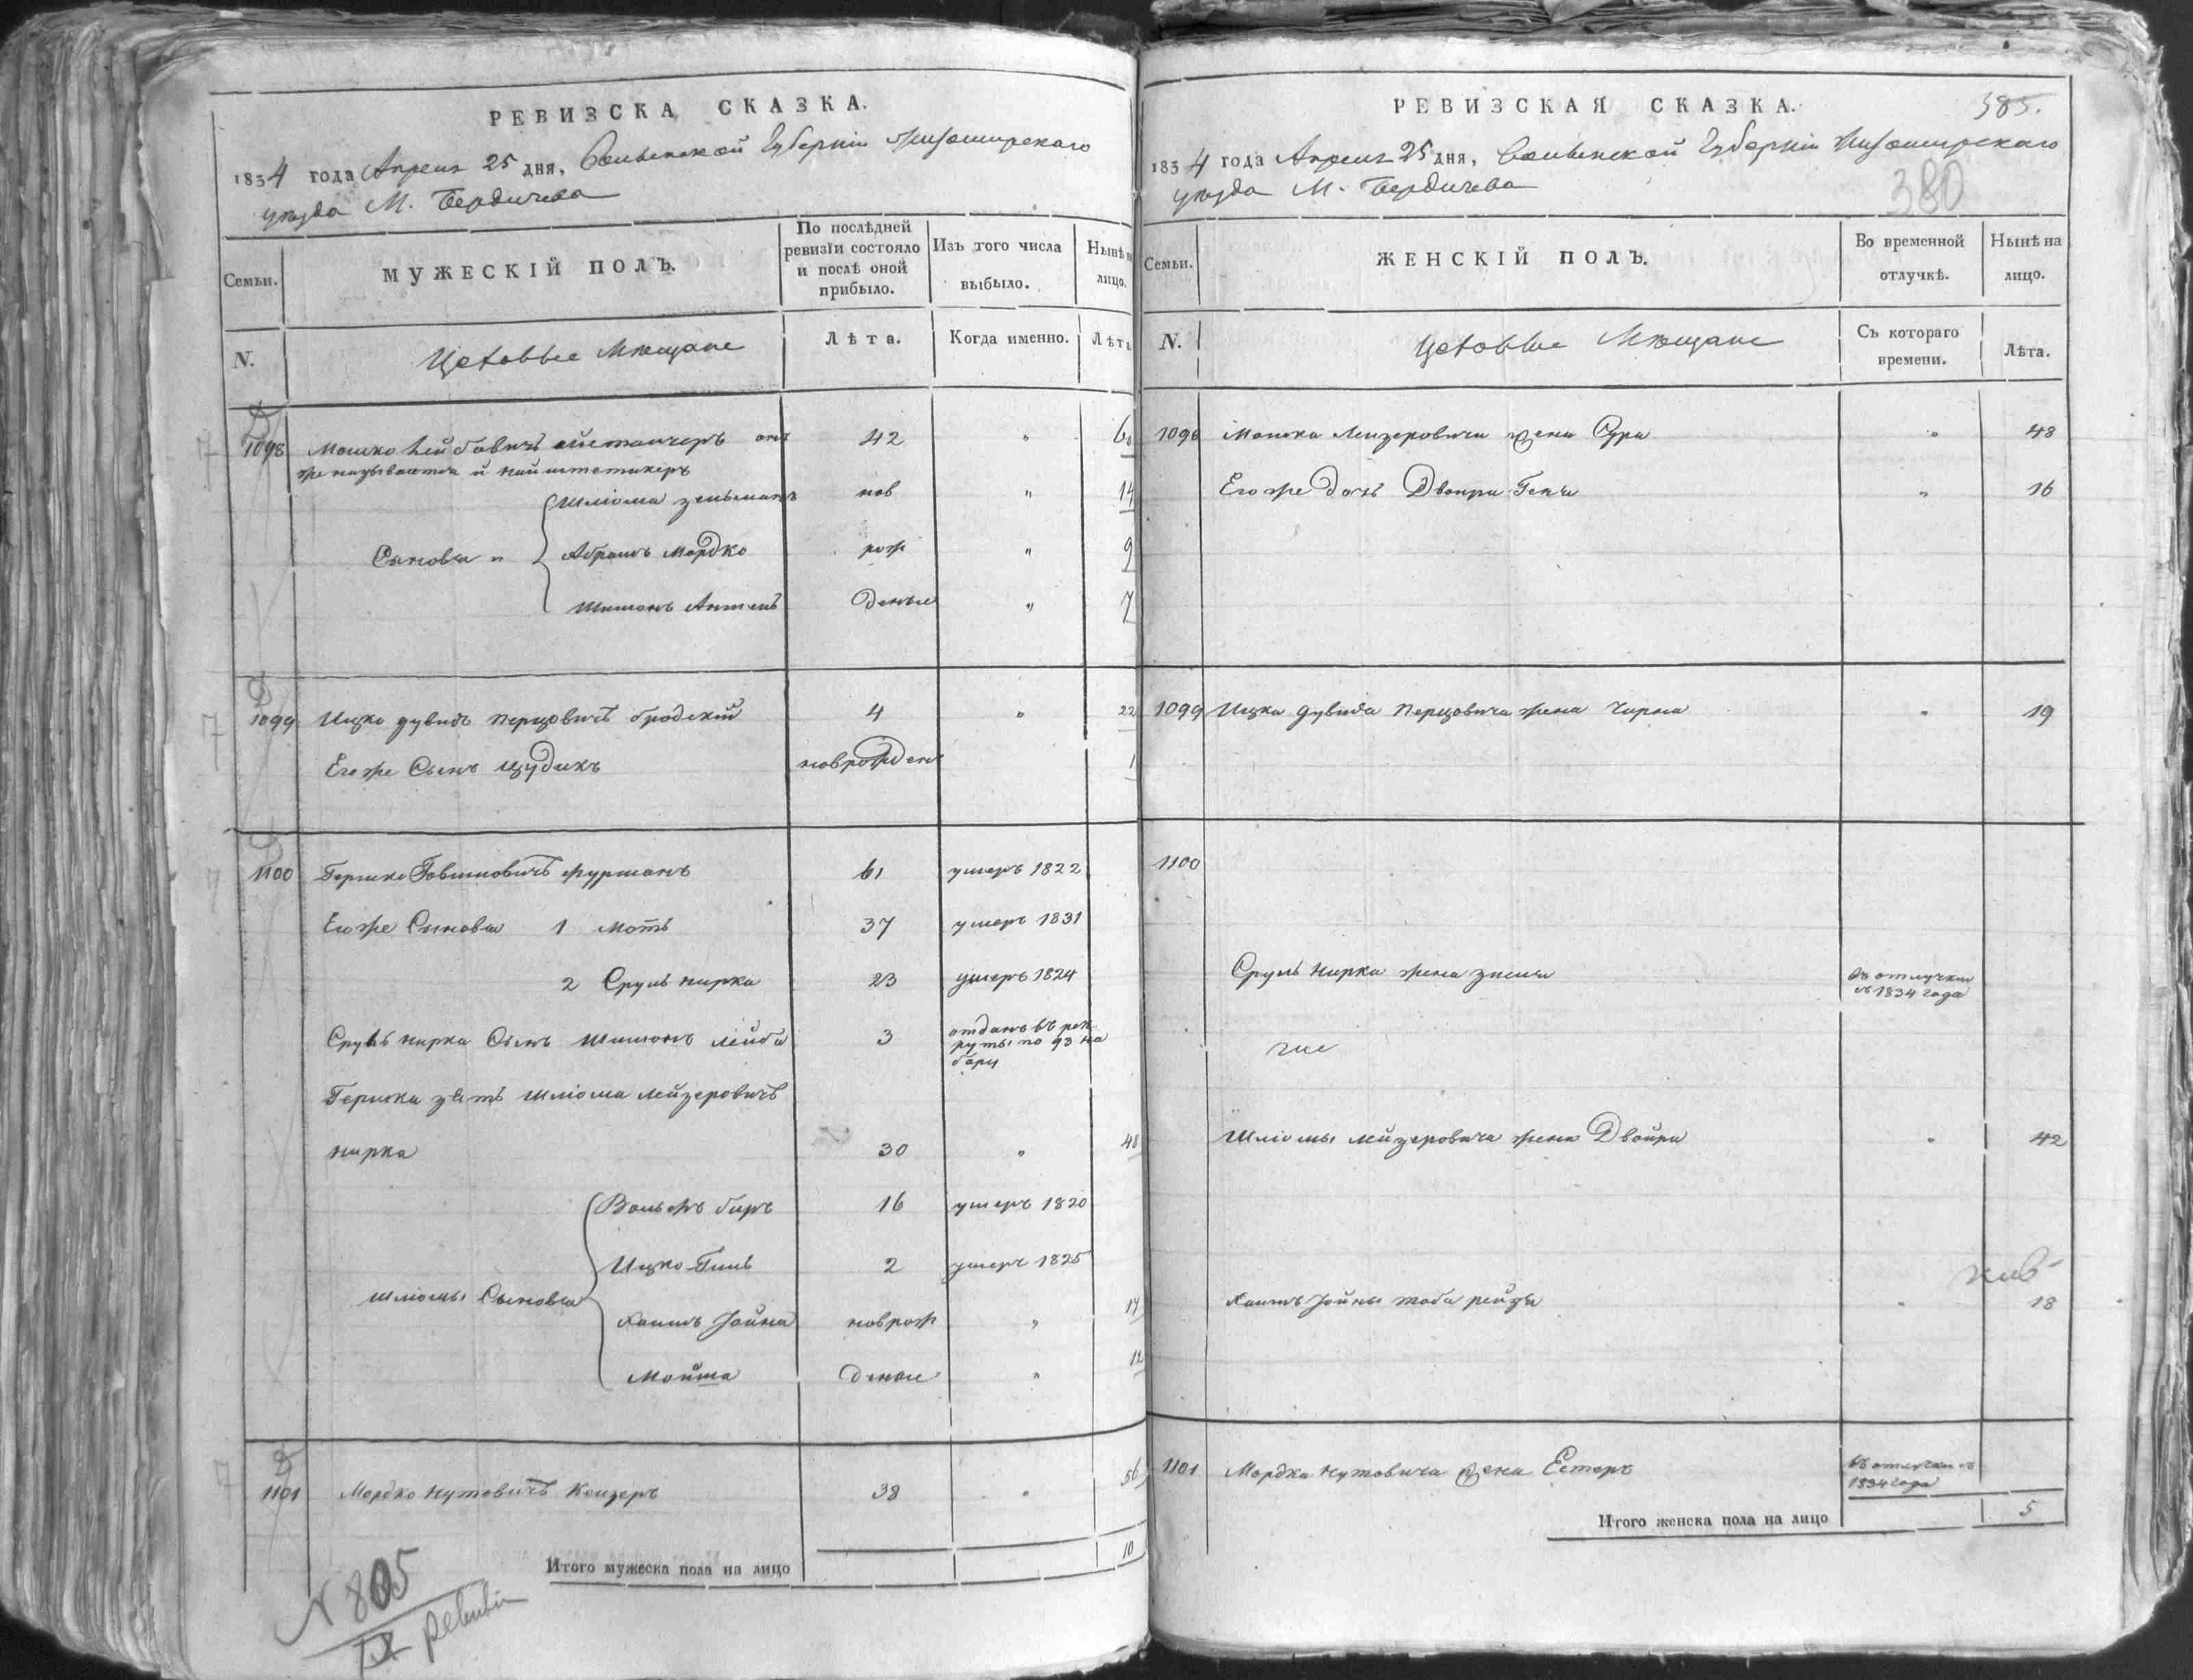 РЕВИЗСКА СКАЗКА.
1834 года Апреля 25 дня, Волынской Губернiи Житомирскаго
уезда М. Бердичева
Семьи.
МУЖЕСКIЙ ПОЛЪ.
По послѣдней ревизiи состояло и послѣ оной прибыло.
Изъ того числа выбыло.
Нынѣ на лицо.
N.
Цеховые Мещане
Лѣта.
Когда именно.
Лѣта
1098 Мошко Лейбовичъ онъ 42 " 60
же называется и
Шлiома Зельманъ нов " 14
Сыновья " Абрамъ Мордко рож " 9
Шимонъ Аншель деные " 7
1099 Ицко Дувидъ Перцовичъ Бродскiй 4 " 22
Его же Сынъ Цудикъ новрожден 1
1100 Гершко Фурманъ 61 умеръ 1822
Его же Сыновья 1 Моть 37 умеръ 1831
2 Сруль Кирка 23 умеръ 1824
Сруль Кирка Сынъ Шимонъ Лейба 3 отданъ въ рек
руты по 93 на
бору
Гершка зять Шлiома Лейзеровичъ
Кирка 30 " 48
Вольфъ Беръ 16 умеръ 1820
Ицко Гиль 2 умеръ 1825
Шлiомы Сыновья
Хаимъ Iойна новрож " 17
Мойша деные " 12
1101 Мордко Нутовичъ 38 " 56
Итого мужеска пола на лицо 10
N 805
IX ревизiи
РЕВИЗСКАЯ СКАЗКА.
385.
1834 года Апреля 25 дня, Волынской Губернiи Житомирскаго
уезда М. Бердичева
380
Семьи.
ЖЕНСКIЙ ПОЛЪ.
Во временной отлучкѣ.
Нынѣ на лицо.
N.
Цеховые Мещане
Съ котораго времени.
Лѣта.
1098 Мошка Лейзеровича жена Сура " 48
Его же дочь Двойра Геня " 16
1099 Ицка Дувида Перцовича жена Чарна " 19
1100
Сруль Кирка жена въ отлучки
съ 1834 года
Шлiомы Лейзеровича жена Двойра " 42
Хаимъ Iойны Тоба Рейзя " 18
1101 Мордка Нутовича жена Естеръ въ отлучки съ
1834 года
Итого женска пола на лицо 5